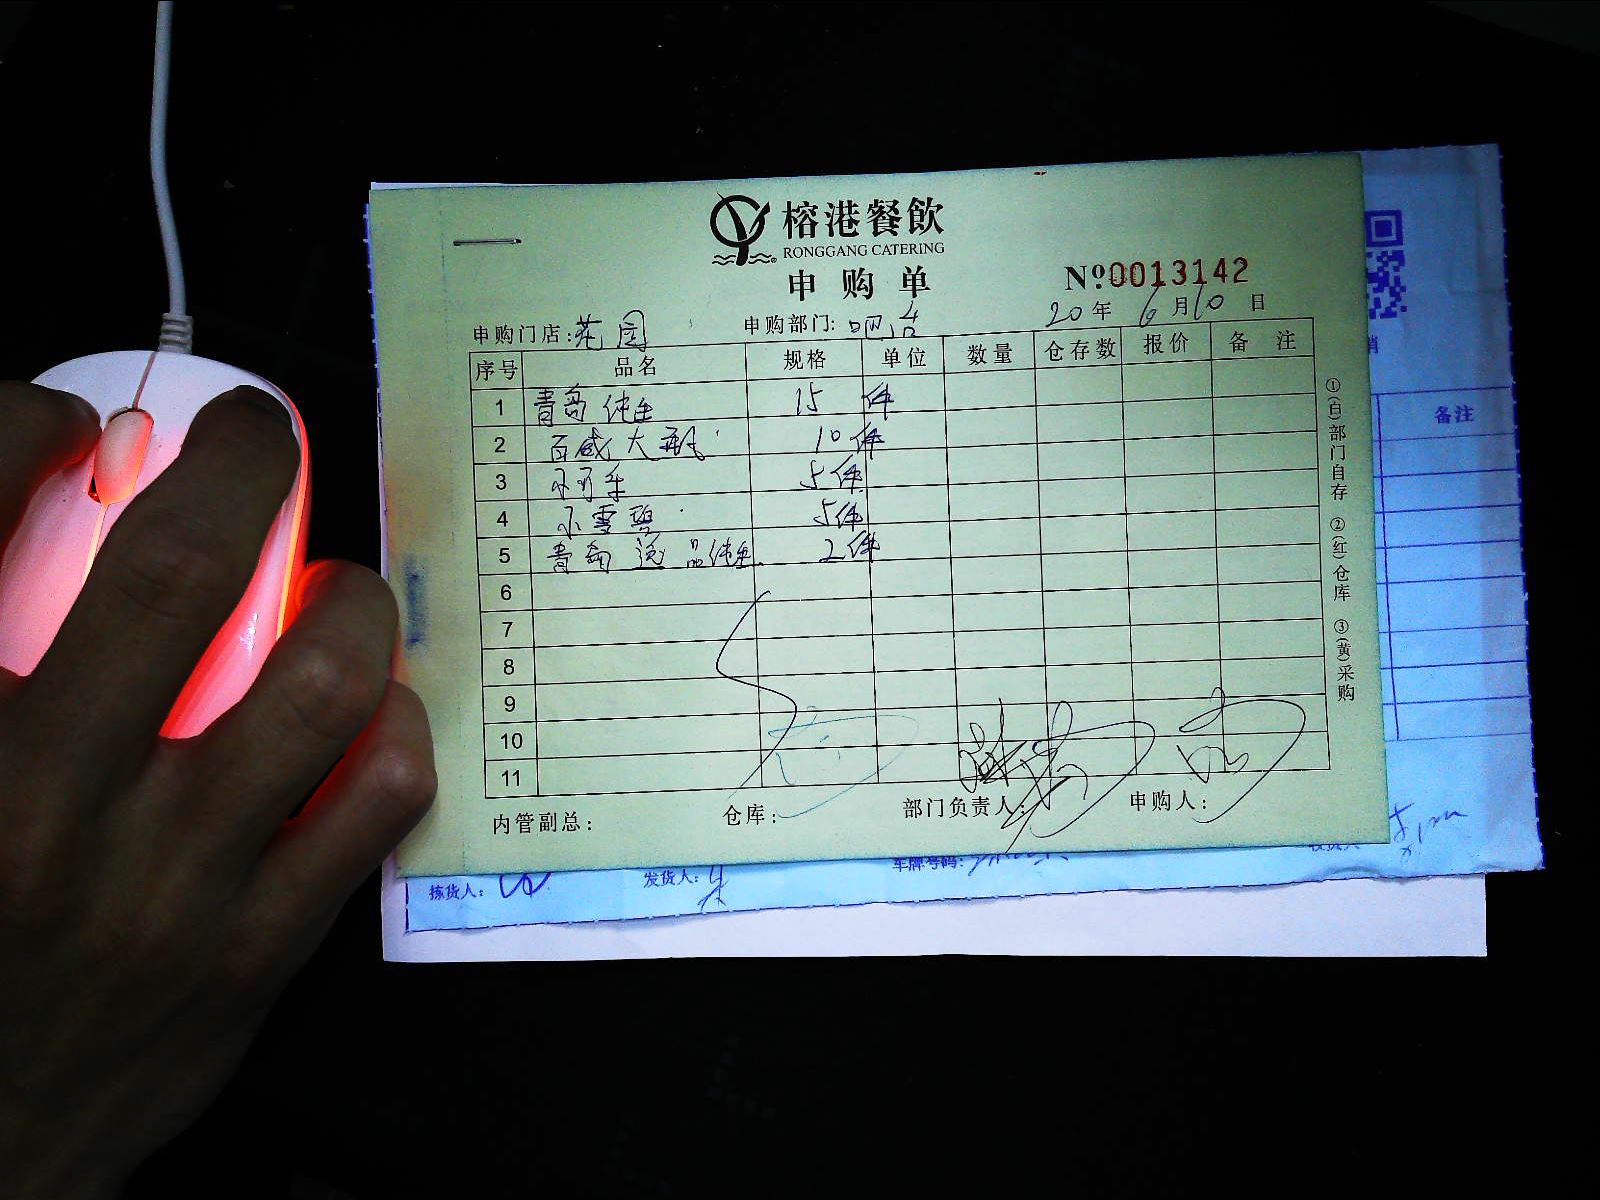 榕港餐飲
RONGGANG CATERING
申购单
Nº:0013142
申购门店:花园 申购部门:吧台 20年6月10日
序号 品名 规格 单位 数量 仓存数 报价 备注
1 青岛纯生 15 件
2 百威大瓶 10件
3 小可乐 5件
4 小雪碧 5件
5 青岛逸品纯生 2件
6
7
8
9
10
11
内管副总: 仓库: 部门负责人: 申购人:
①(白)部门自存 ②(红)仓库 ③(黄)采购
备注
拣货人: 发货人: 车牌号码: